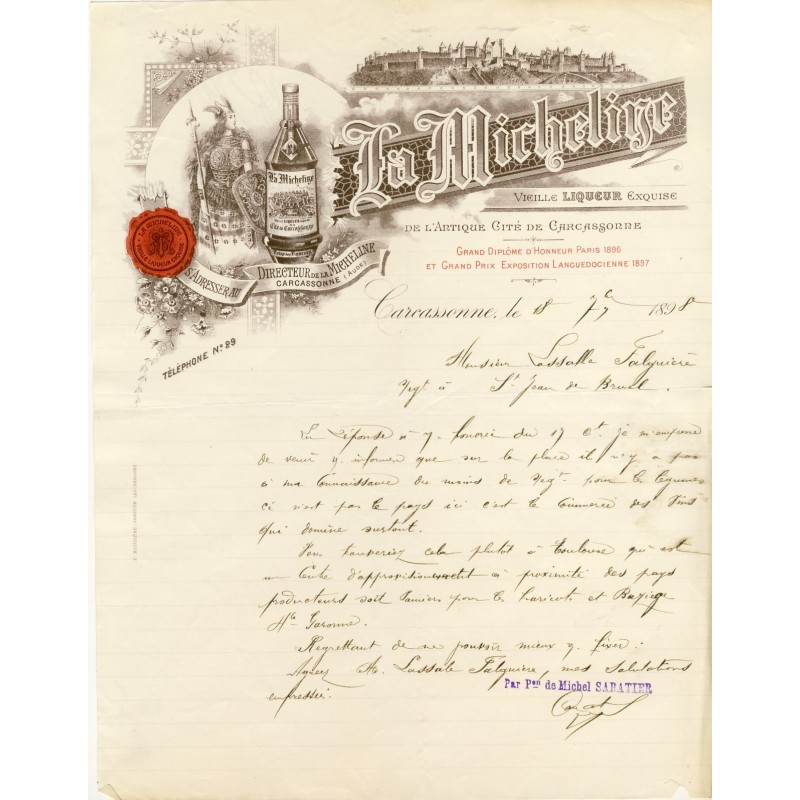 La Micheline
VIEILLE LIQUEUR EXQUISE
DE L'ANTIQUE CITÉ DE CARCASSONNE
GRAND DIPLÔME D'HONNEUR PARIS 1896
ET GRAND PRIX EXPOSITION LANGUEDOCIENNE 1897
La Micheline
Cité de Carcassonne
LA MICHELINE
S'ADRESSER AU
DIRECTEUR DE LA MICHELINE
CARCASSONNE (AUDE)
TÉLÉPHONE Nº 29
Carcassonne, le 18 1898
Monsieur Lassalle Falguière
Negt à St Jean de Bruel.
En Réponse à v. honorée du 17 ct. je m'empresse
de venir v. informer que sur la place il n'y a pas
à ma Connaissance du moins de Negt. pour les légumes
ci n'est pas le pays ici c'est le Commerce des Vins
qui domine surtout.
Vous trouveriez cela plutôt à Toulouse qui est
un Centre d'approvisionnement à proximité des pays
producteurs soit Pamiers pour le haricot et Baziège
Hte Garonne.
Regrettant de ne pouvoir mieux v. fixer.
Agréez M. Lassale Falguière, mes Salutations
empressées.
Par Pon de Michel SABATIER